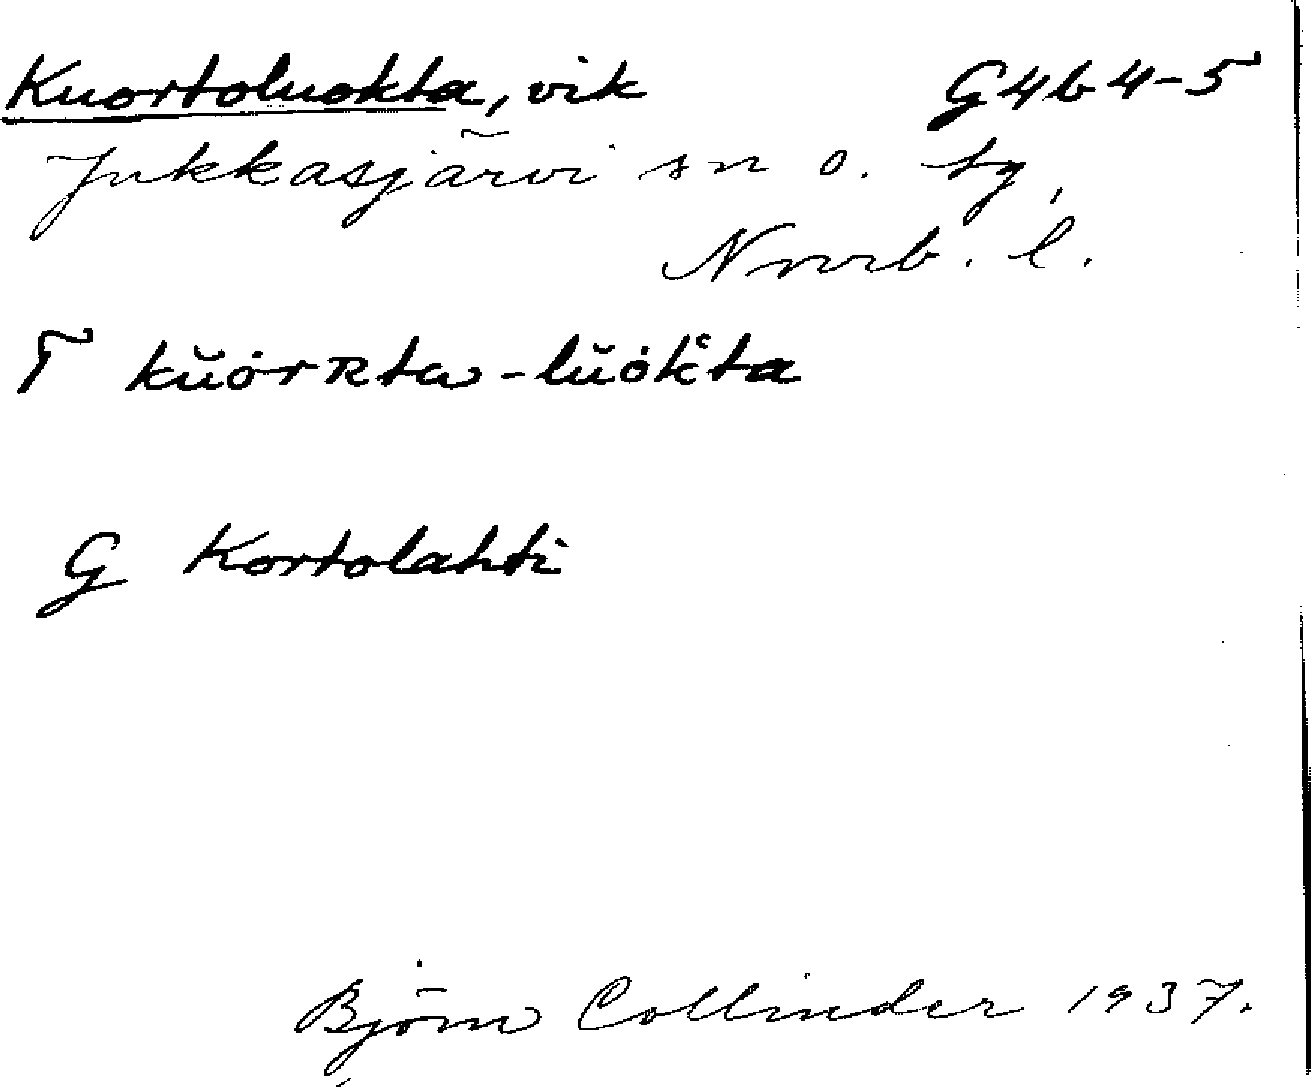 Kuortoluokta, vik G4b4-5
Jukkasjärvi sn o. tg,
Norrb. l.
T kŭȯrʀta-lŭȯk̔ta
G Kortolahti
Björn Collinder 1937.